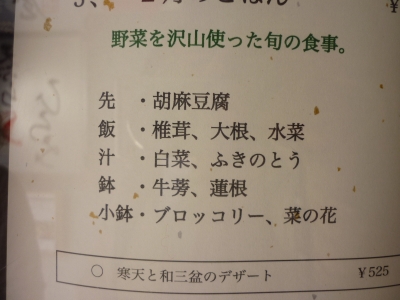 野菜を沢山使った旬の食事。
先 ・胡麻豆腐
飯 ・椎茸、大根、水菜
汁 ・白菜、ふきのとう
鉢 ・牛蒡、蓮根
小鉢・ブロッコリー、菜の花
○ 寒天と和三盆のデザート ¥525